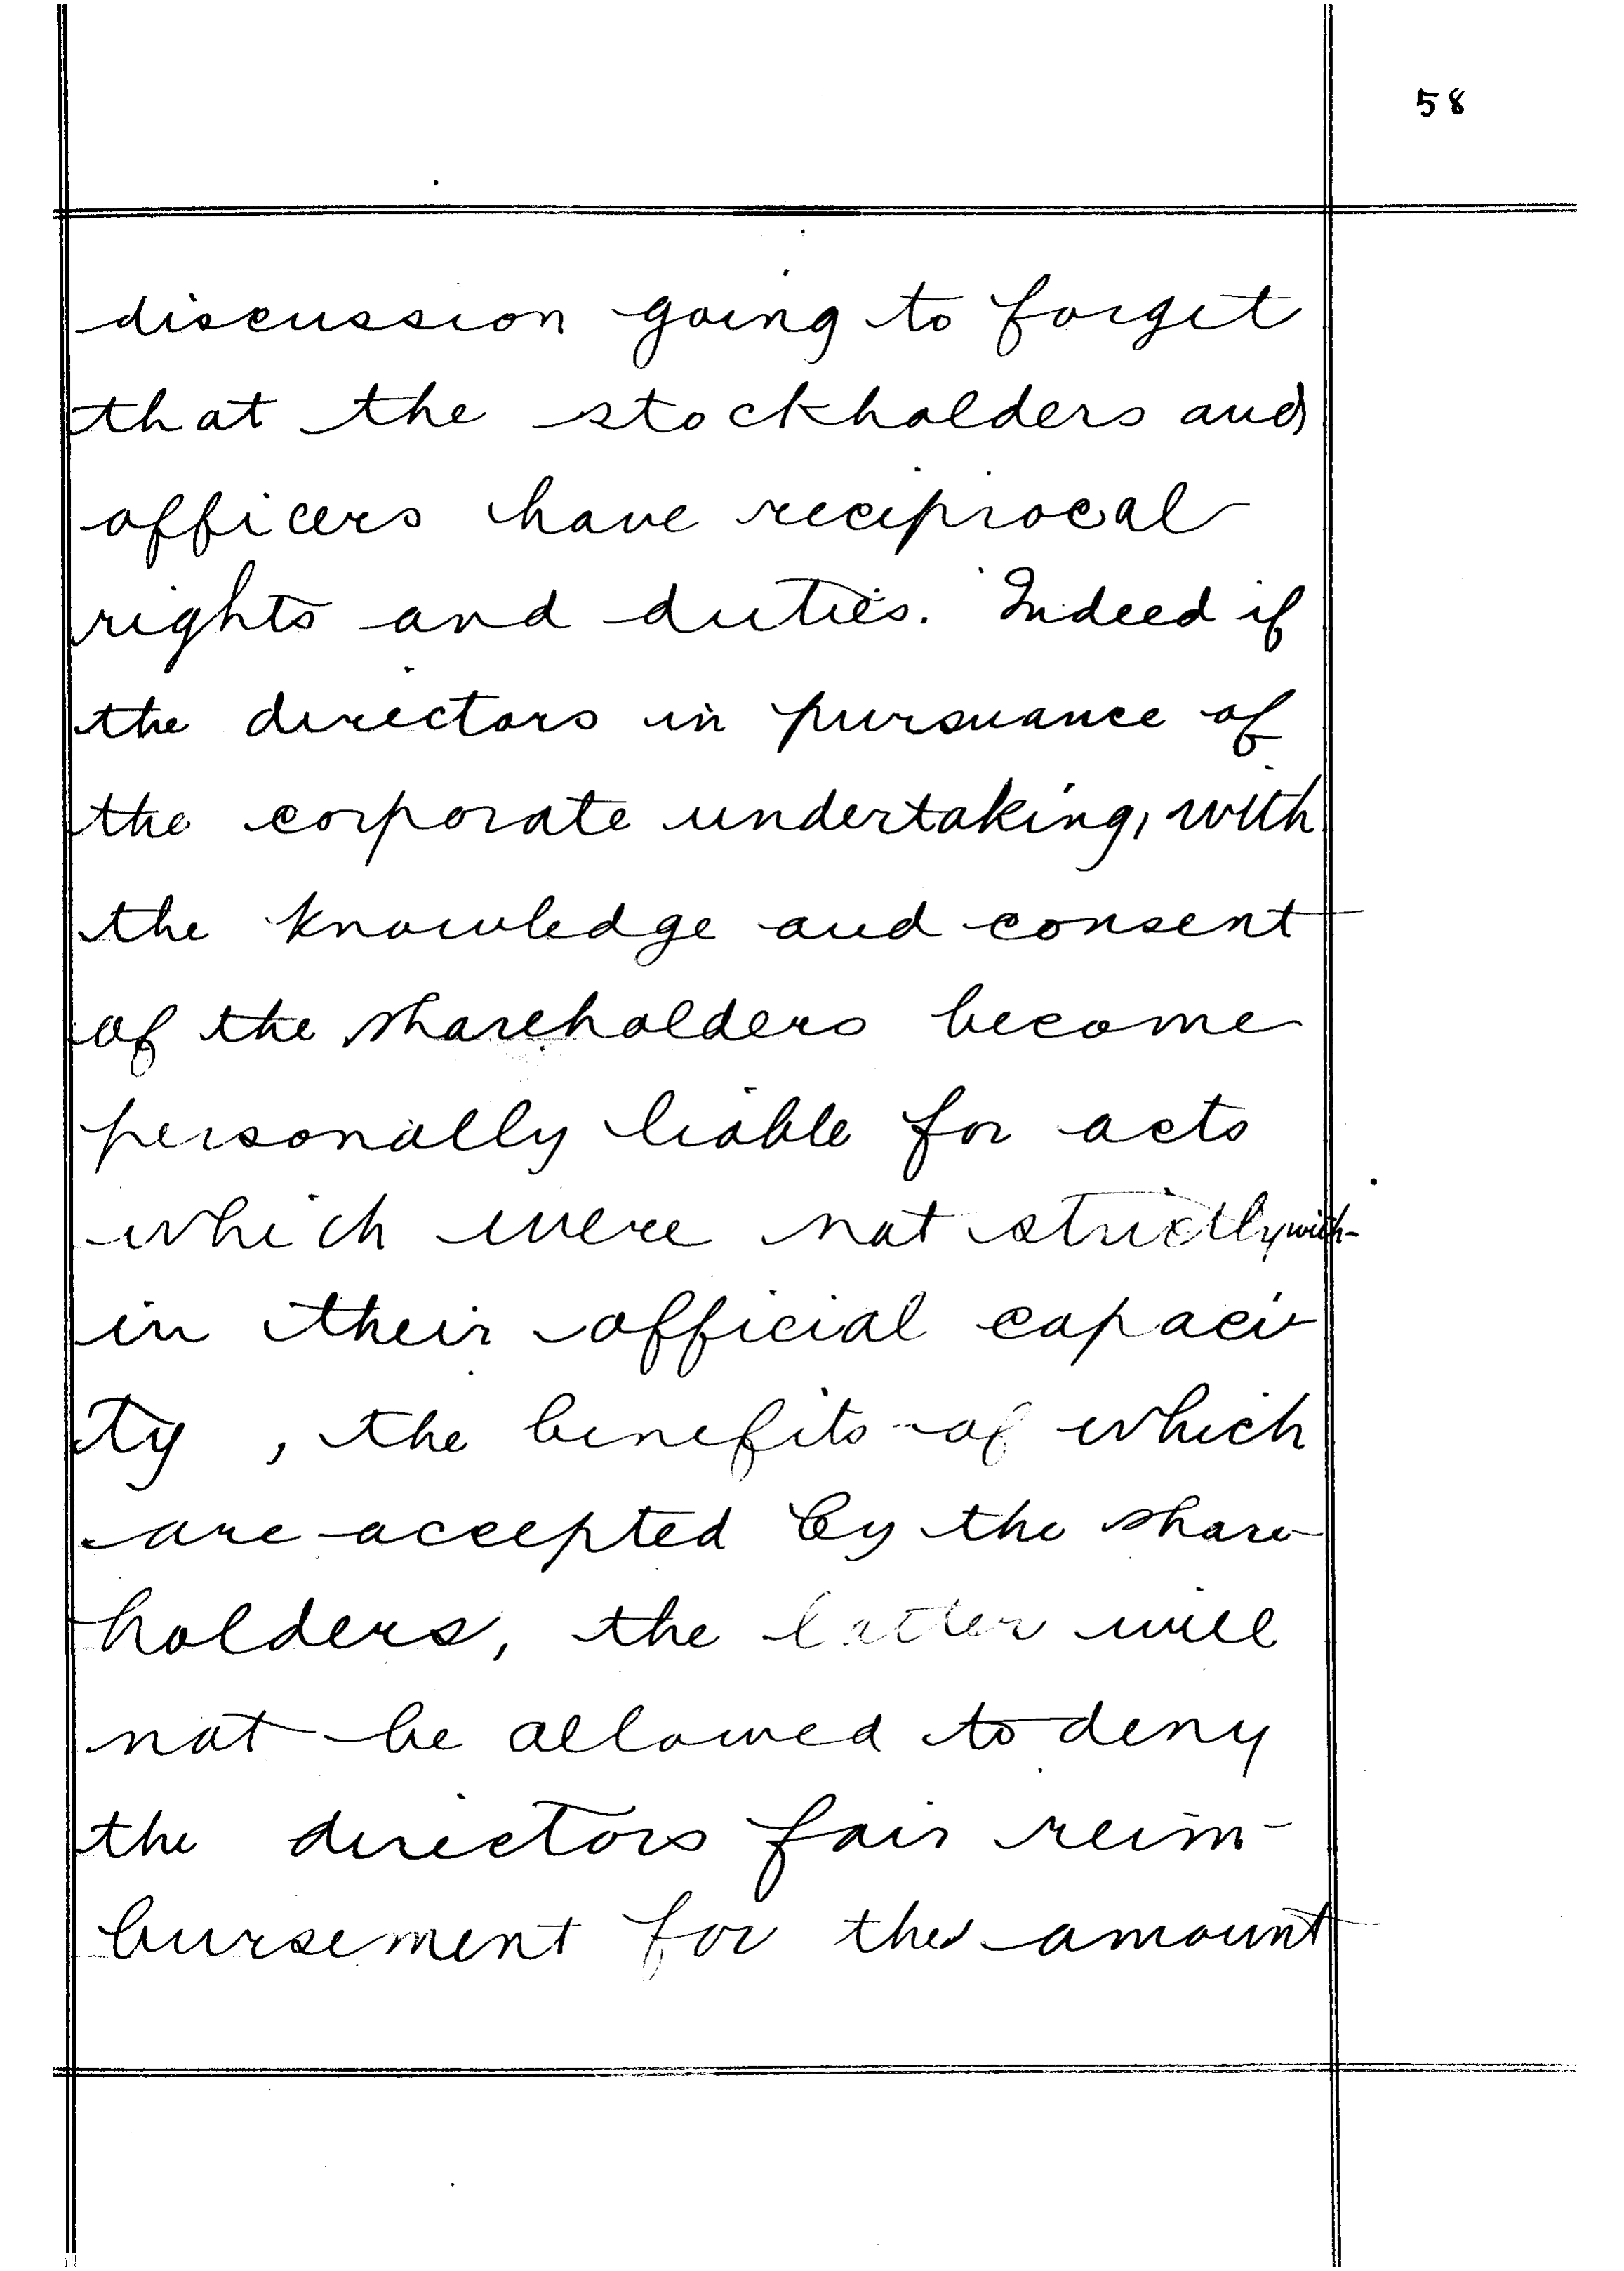 58
discussion going to forget
that the stockholders and
officers have reciprocal
rights and duties. Indeed if
the directors in pursuance of
the corporate undertaking, with
the knowledge and consent
of the shareholders become
personally liable for acts
which were not strictly with-
in their official capaci-
ty, the benefits of which
are accepted by the share-
holders, the latter will
not be allowed to deny
the directors fair reim-
bursement for the amount